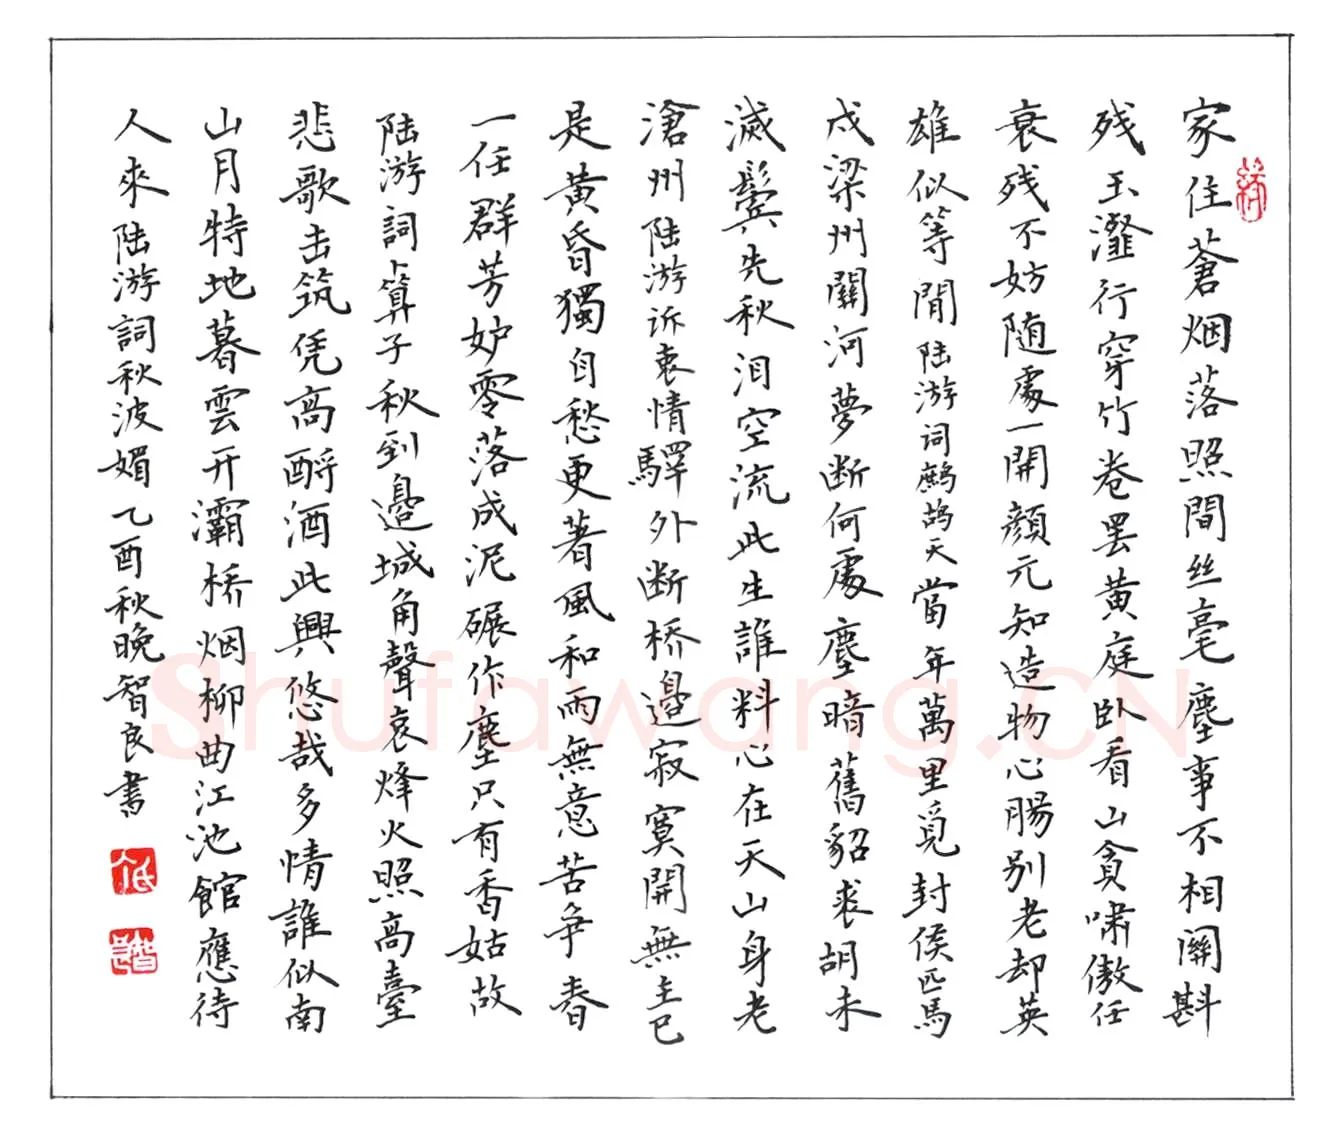 家住蒼烟落照間丝毫塵事不相關斟
残玉瀣行穿竹卷罢黄庭卧看山貪啸傲任
衰残不妨随處一開顏元知造物心腸别老却英
雄似等閒陆游词鹧鸪天當年萬里覓封侯匹馬
戍梁州關河夢断何處塵暗舊貂裘胡未
滅鬓先秋泪空流此生誰料心在天山身老
滄州陆游诉衷情驛外断桥邉寂寞開無主已
是黄昏獨自愁更著風和雨無意苦争春
一任群芳妒零落成泥碾作塵只有香姑故
陆游詞卜算子秋到邉城角聲哀烽火照高臺
悲歌击筑凭高酹酒此興悠哉多情誰似南
山月特地暮雲开灞桥烟柳曲江池館應待
人來陆游詞秋波媚乙酉秋晚智良書
Shufawang.CN